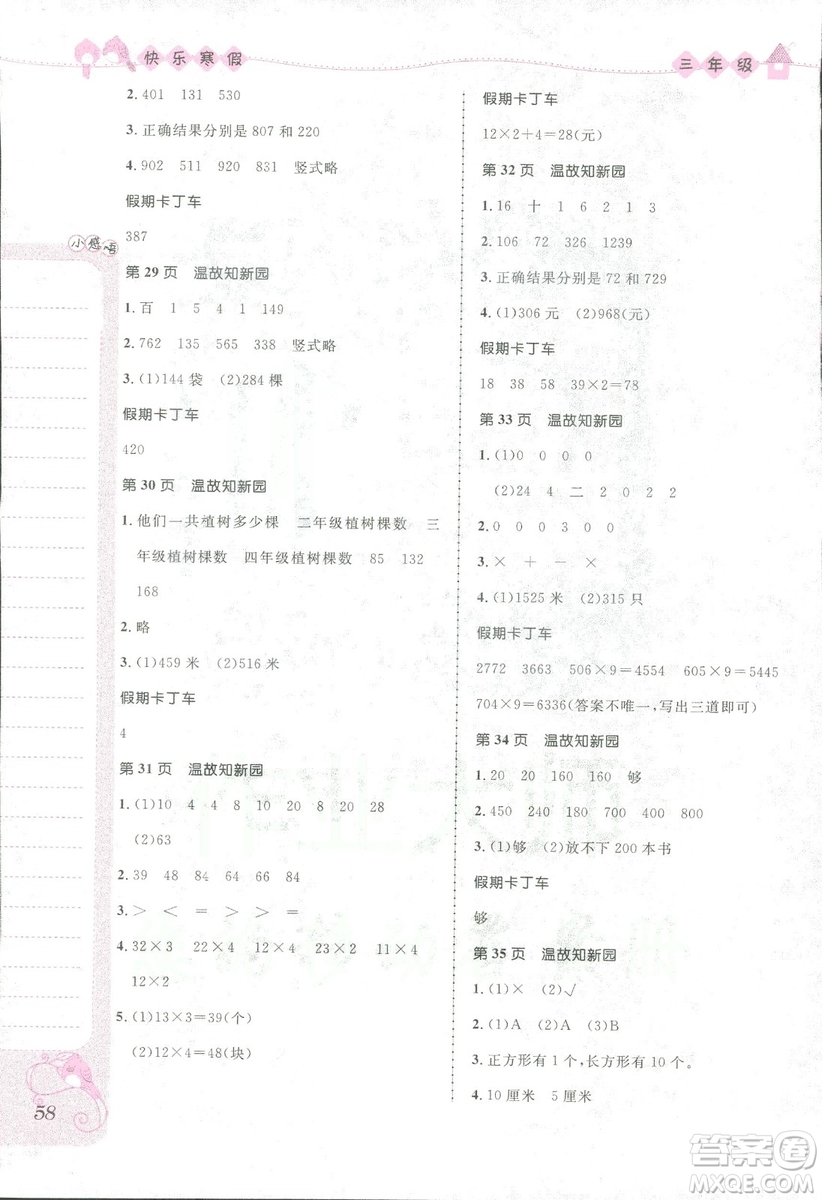 快乐寒假
三年级
小感悟
2. 401 131 530
3. 正确结果分别是 807 和 220
4. 902 511 920 831 竖式略
假期卡丁车
387
第 29 页 温故知新园
1. 百 1 5 4 1 149
2. 762 135 565 338 竖式略
3. (1)144 袋 (2)284 棵
假期卡丁车
420
第 30 页 温故知新园
1. 他们一共植树多少棵 二年级植树棵数 三
年级植树棵数 四年级植树棵数 85 132
168
2. 略
3. (1)459 米 (2)516 米
假期卡丁车
4
第 31 页 温故知新园
1. (1)10 4 4 8 10 20 28
(2)63
2. 39 48 84 66 20 84
3. > < > > < <
4. 32×3 22×4 12×4 23×2 11×4
12×4
5. (1)13×3=39(个)
(2)12×4=48(块)
58
假期卡丁车
12×2+4=28(元)
第 32 页 温故知新园
1. 16 十 1 6 2 1 2
2. 106 70 326 1239
3. 正确结果分别是 72 和 729
4. (1)306 元 (2)968(元)
假期卡丁车
18 38 58 39×2=78
第 33 页 温故知新园
1. (1)0 0 0 0
(2)24 4 二 2 0 2 2
2. 0 0 0 300 0 0
3. × + − ×
4. (1)1525 米 (2)315 只
假期卡丁车
2772 3663 506×9=4554 605×9=5445
704×9=6336(答案不唯一,写出三道即可)
第 34 页 温故知新园
1. 20 20 160 160 够
2. 450 240 180 700 400 800
3. (1)够 (2)放不下 200 本书
假期卡丁车
够
第 35 页 温故知新园
1. (1)× (2)√
2. (1)A (2)A (3)B
3. 正方形有 1 个,长方形有 10 个。
4. 10 厘米 5 厘米
答案圈
MXQE.COM